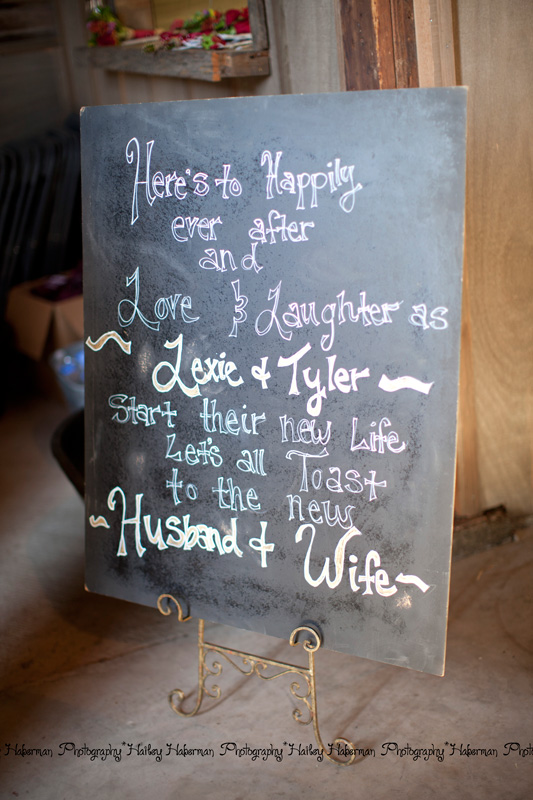 Here's to Happily
ever after
and
Love & Laughter as
~ Lexie & Tyler ~
Start their new Life
Let's all Toast
to the new
~ Husband & Wife ~
Haberman Photography*Hailey Haberman Photography*Hailey Haberman Photography*Hailey Haberman